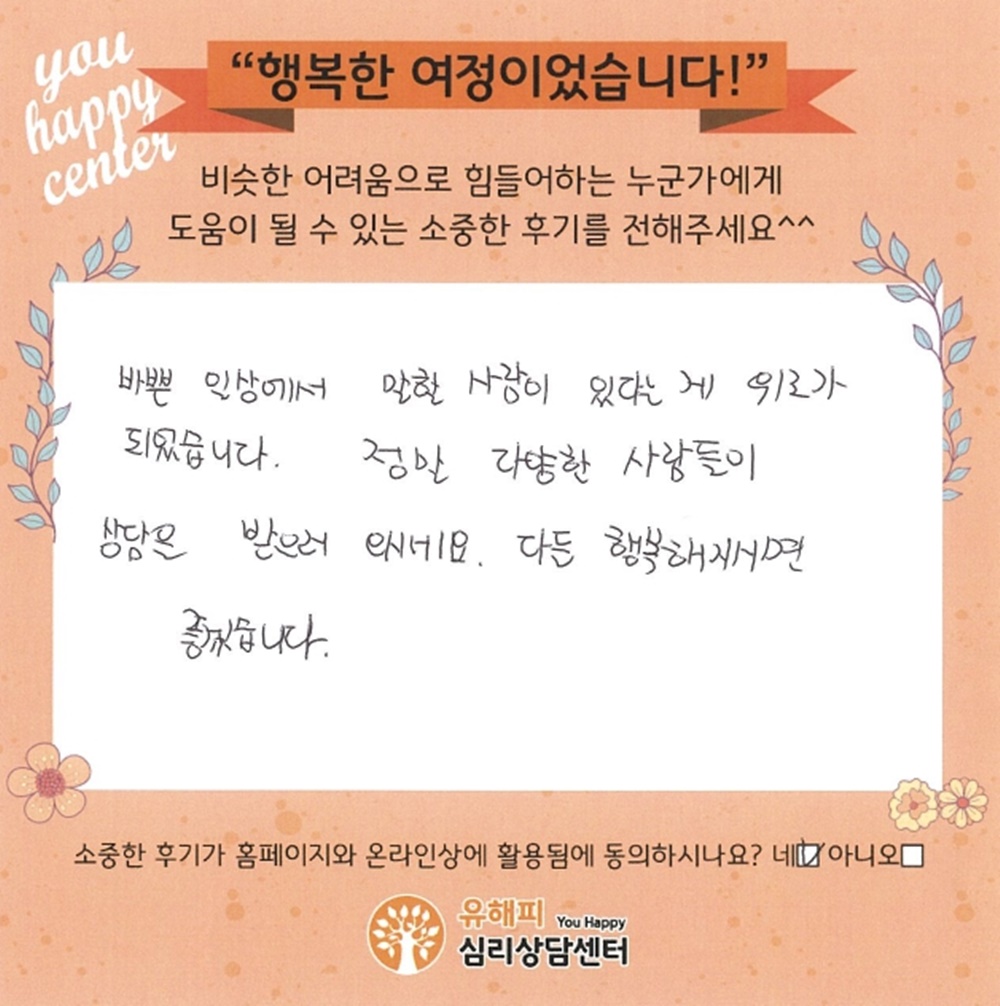 you
happy
center
“행복한 여정이었습니다!”
비슷한 어려움으로 힘들어하는 누군가에게
도움이 될 수 있는 소중한 후기를 전해주세요^^
바쁜 일상에서 말할 사람이 있다는 게 위로가
되었습니다. 정말 다양한 사람들이
상담을 받으러 오시네요. 다들 행복해지시면
좋겠습니다.
소중한 후기가 홈페이지와 온라인상에 활용됨에 동의하시나요? 네☑ 아니오☐
유해피 You Happy
심리상담센터